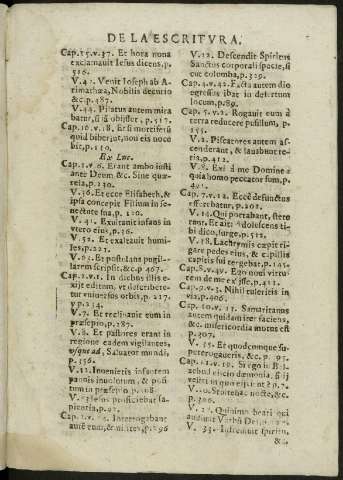 DE LA ESCRITVRA.
Cap.15.v.37. Et hora nona
exclamauit Iesus dicens, p.
516.
V.42. Venit Ioseph ab A-
rimathæa, Nobilis decurio
&c.p.487.
V.44. Pilatus autem mira
batur, si iã obijsset, p.517.
Cap.16.v.18. Et si mortiferũ
quid biberint, non eis noce
bit, p.110.
Ex Luc.
Cap.1.v.6. Erant ambo iusti
ante Deum &c. Sine quæ-
rela, p.230.
V.36. Et ecce Elisabeth, &
ipsa concepit Filium in se-
nectute sua, p. 220.
V.41. Exultauit infans in
vtero eius, p.36.
V.52. Et exaltauit humi-
les, p.221.
V.63. Et postulans pugil-
larem scripsit, &c. p. 467.
Cap.2.v.1. In diebus illis e-
xijt edictum, vt describere-
tur vniuersus orbis, p.217.
y p.234.
V.7. Et reclinauit eum in
præsepio, p.287.
V.8. Et pastores erant in
regione eadem vigilantes,
vsque ad, Saluator mundi,
p.356.
V.12. Inuenietis infantem
pannis inuolutum, & posi-
tum in præsepio p.288.
Iesus proficiebat sa-
pientia, p.92.
Interrogabant
autē eum, & milites, p.296
V.22. Descendit Spiritus
Sanctus corporali specie, si
cut columba, p.329.
Cap.4.v.42. Facta autem die
egressus ibat in desertum
locum, p.89.
Cap.5.v.2. Rogauit eum à
terra reducere pusillum, p.
V.2. Piscatores autem as-
cenderant, & lauabunt re-
tia, p.412.
V.8. Exi à me Domine
quia homo peccator sum, p.
401.
Cap.7.v.12. Ecce defunctus
efferebatur, p.202.
V.14. Qui portabant, stete
runt. Et ait: Adolescens ti-
bi dico, surge, p.512.
V.38. Lachrymis cœpit ri-
gare pedes eius, & capillis
capitis sui tergebat, p.145.
Cap.8.v.46. Ego noui virtu-
tem de me exisse, p.412.
Cap.9.v.3. Nihil tuleritis in
via, p.406.
Cap.10.v.33. Samaritanus
autem quidam iter faciens,
&c. misericordia motus est
p.307.
V.35. Et quodcunque su-
pererogaueris, &c. p. 93.
ebzebul
eiecio dæmonia, si ij
&c.
p.300.
Quinimo beati qui
audiunt Verbũ
V.33. Infremuit spiritu,
&c.